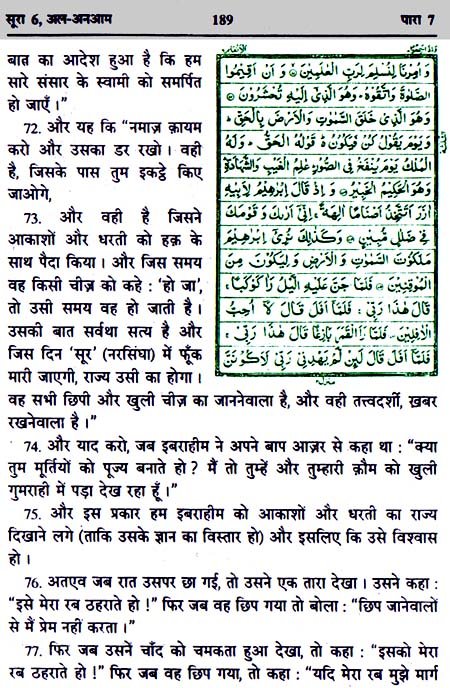 सूरा 6, अल-अनआम 189 पारा 7
बात का आदेश हुआ है कि हम
सारे संसार के स्वामी को समर्पित
हो जाएँ।”
72. और यह कि “नमाज़ क़ायम
करो और उसका डर रखो। वही
है, जिसके पास तुम इकट्ठे किए
जाओगे,
73. और वही है जिसने
आकाशों और धरती को हक़ के
साथ पैदा किया। और जिस समय
वह किसी चीज़ को कहे : 'हो जा',
तो उसी समय वह हो जाती है।
उसकी बात सर्वथा सत्य है और
जिस दिन 'सूर' (नरसिंघा) में फूँक
मारी जाएगी, राज्य उसी का होगा।
वह सभी छिपी और खुली चीज़ का जाननेवाला है, और वही तत्त्वदर्शी, ख़बर
रखनेवाला है।”
74. और याद करो, जब इबराहीम ने अपने बाप आज़र से कहा था : “क्या
तुम मूर्तियों को पूज्य बनाते हो? मैं तो तुम्हें और तुम्हारी क़ौम को खुली
गुमराही में पड़ा देख रहा हूँ।”
75. और इस प्रकार हम इबराहीम को आकाशों और धरती का राज्य
दिखाने लगे (ताकि उसके ज्ञान का विस्तार हो) और इसलिए कि उसे विश्वास
हो।
76. अतएव जब रात उसपर छा गई, तो उसने एक तारा देखा। उसने कहा :
“इसे मेरा रब ठहराते हो!” फिर जब वह छिप गया तो बोला : “छिप जानेवालों
से मैं प्रेम नहीं करता।”
77. फिर जब उसने चाँद को चमकता हुआ देखा, तो कहा : “इसको मेरा
रब ठहराते हो!” फिर जब वह छिप गया, तो कहा : “यदि मेरा रब मुझे मार्ग
وَ اُمِرْنَا لِنُسْلِمَ لِرَبِّ الْعٰلَمِيْنَ وَ اَنْ اَقِيْمُوا
الصَّلٰوةَ وَاتَّقُوْهُ وَهُوَ الَّذِيْٓ اِلَيْهِ تُحْشَرُوْنَ
وَهُوَ الَّذِيْ خَلَقَ السَّمٰوٰتِ وَالْاَرْضَ بِالْحَقِّ
وَيَوْمَ يَقُوْلُ كُنْ فَيَكُوْنُ قَوْلُهُ الْحَقُّ وَلَهُ
الْمُلْكُ يَوْمَ يُنْفَخُ فِي الصُّوْرِ عٰلِمُ الْغَيْبِ وَالشَّهَادَةِ
وَهُوَ الْحَكِيْمُ الْخَبِيْرُ وَ اِذْ قَالَ اِبْرٰهِيْمُ لِاَبِيْهِ
اٰزَرَ اَتَتَّخِذُ اَصْنَامًا اٰلِهَةً اِنِّيْٓ اَرٰىكَ وَ قَوْمَكَ
فِيْ ضَلٰلٍ مُّبِيْنٍ وَكَذٰلِكَ نُرِيْٓ اِبْرٰهِيْمَ
مَلَكُوْتَ السَّمٰوٰتِ وَالْاَرْضِ وَلِيَكُوْنَ مِنَ
الْمُوْقِنِيْنَ فَلَمَّا جَنَّ عَلَيْهِ الَّيْلُ رَاٰ كَوْكَبًا
قَالَ هٰذَا رَبِّيْ فَلَمَّآ اَفَلَ قَالَ لَآ اُحِبُّ
الْاٰفِلِيْنَ فَلَمَّا رَاَ الْقَمَرَ بَازِغًا قَالَ هٰذَا رَبِّيْ
فَلَمَّآ اَفَلَ قَالَ لَئِنْ لَّمْ يَهْدِنِيْ رَبِّيْ لَاَكُوْنَنَّ